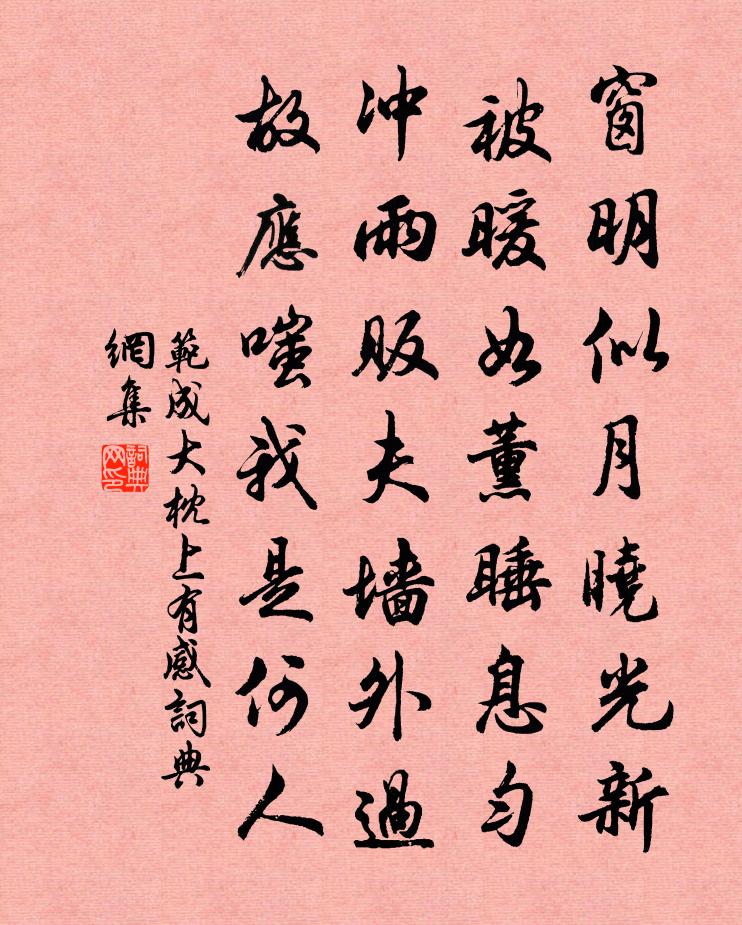 窗明似月曉光新
被暖如薰睡息勻
冲雨販夫墻外過
故應嗤我是何人
範成大枕上有感詞典
網集
詞典網印